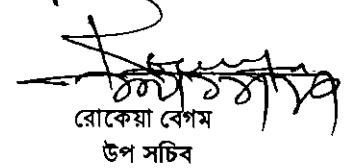 রোকেয়া বেগম
উপ সচিব